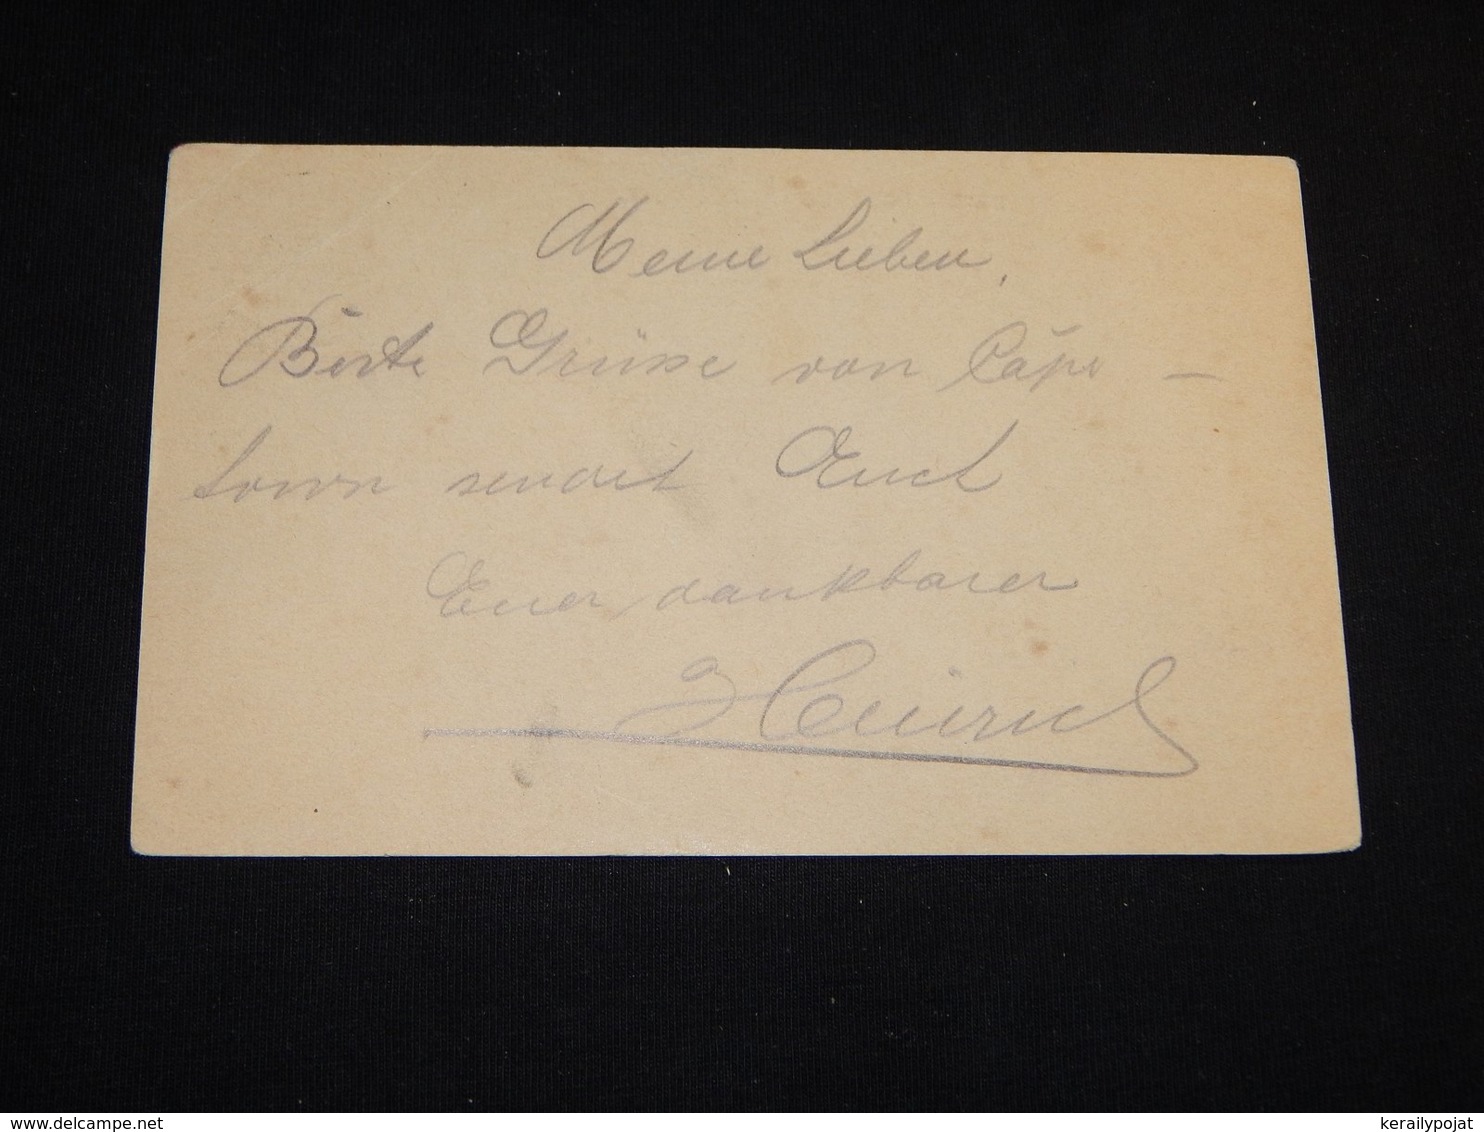 Meine Lieben,
Beste Grüsse von Cape-
town sendet Euch
Euer dankbarer
Heinrich
delcampe.net
kerailypojat